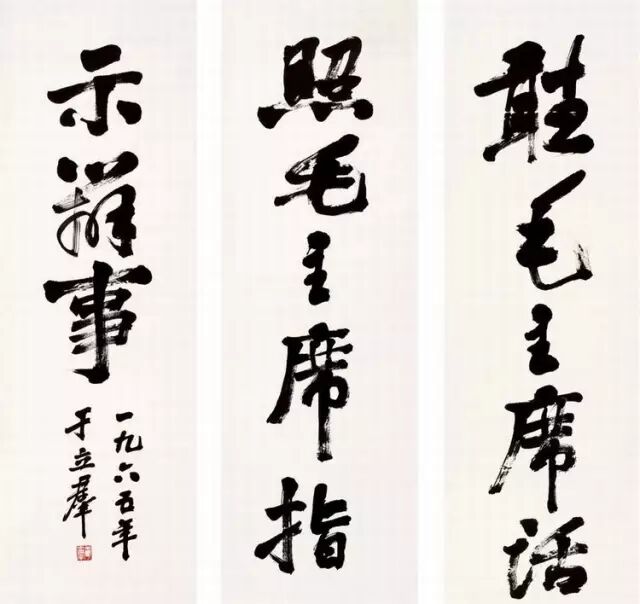 聽毛主席话
照毛主席指
示辦事
一九六五年
于立羣